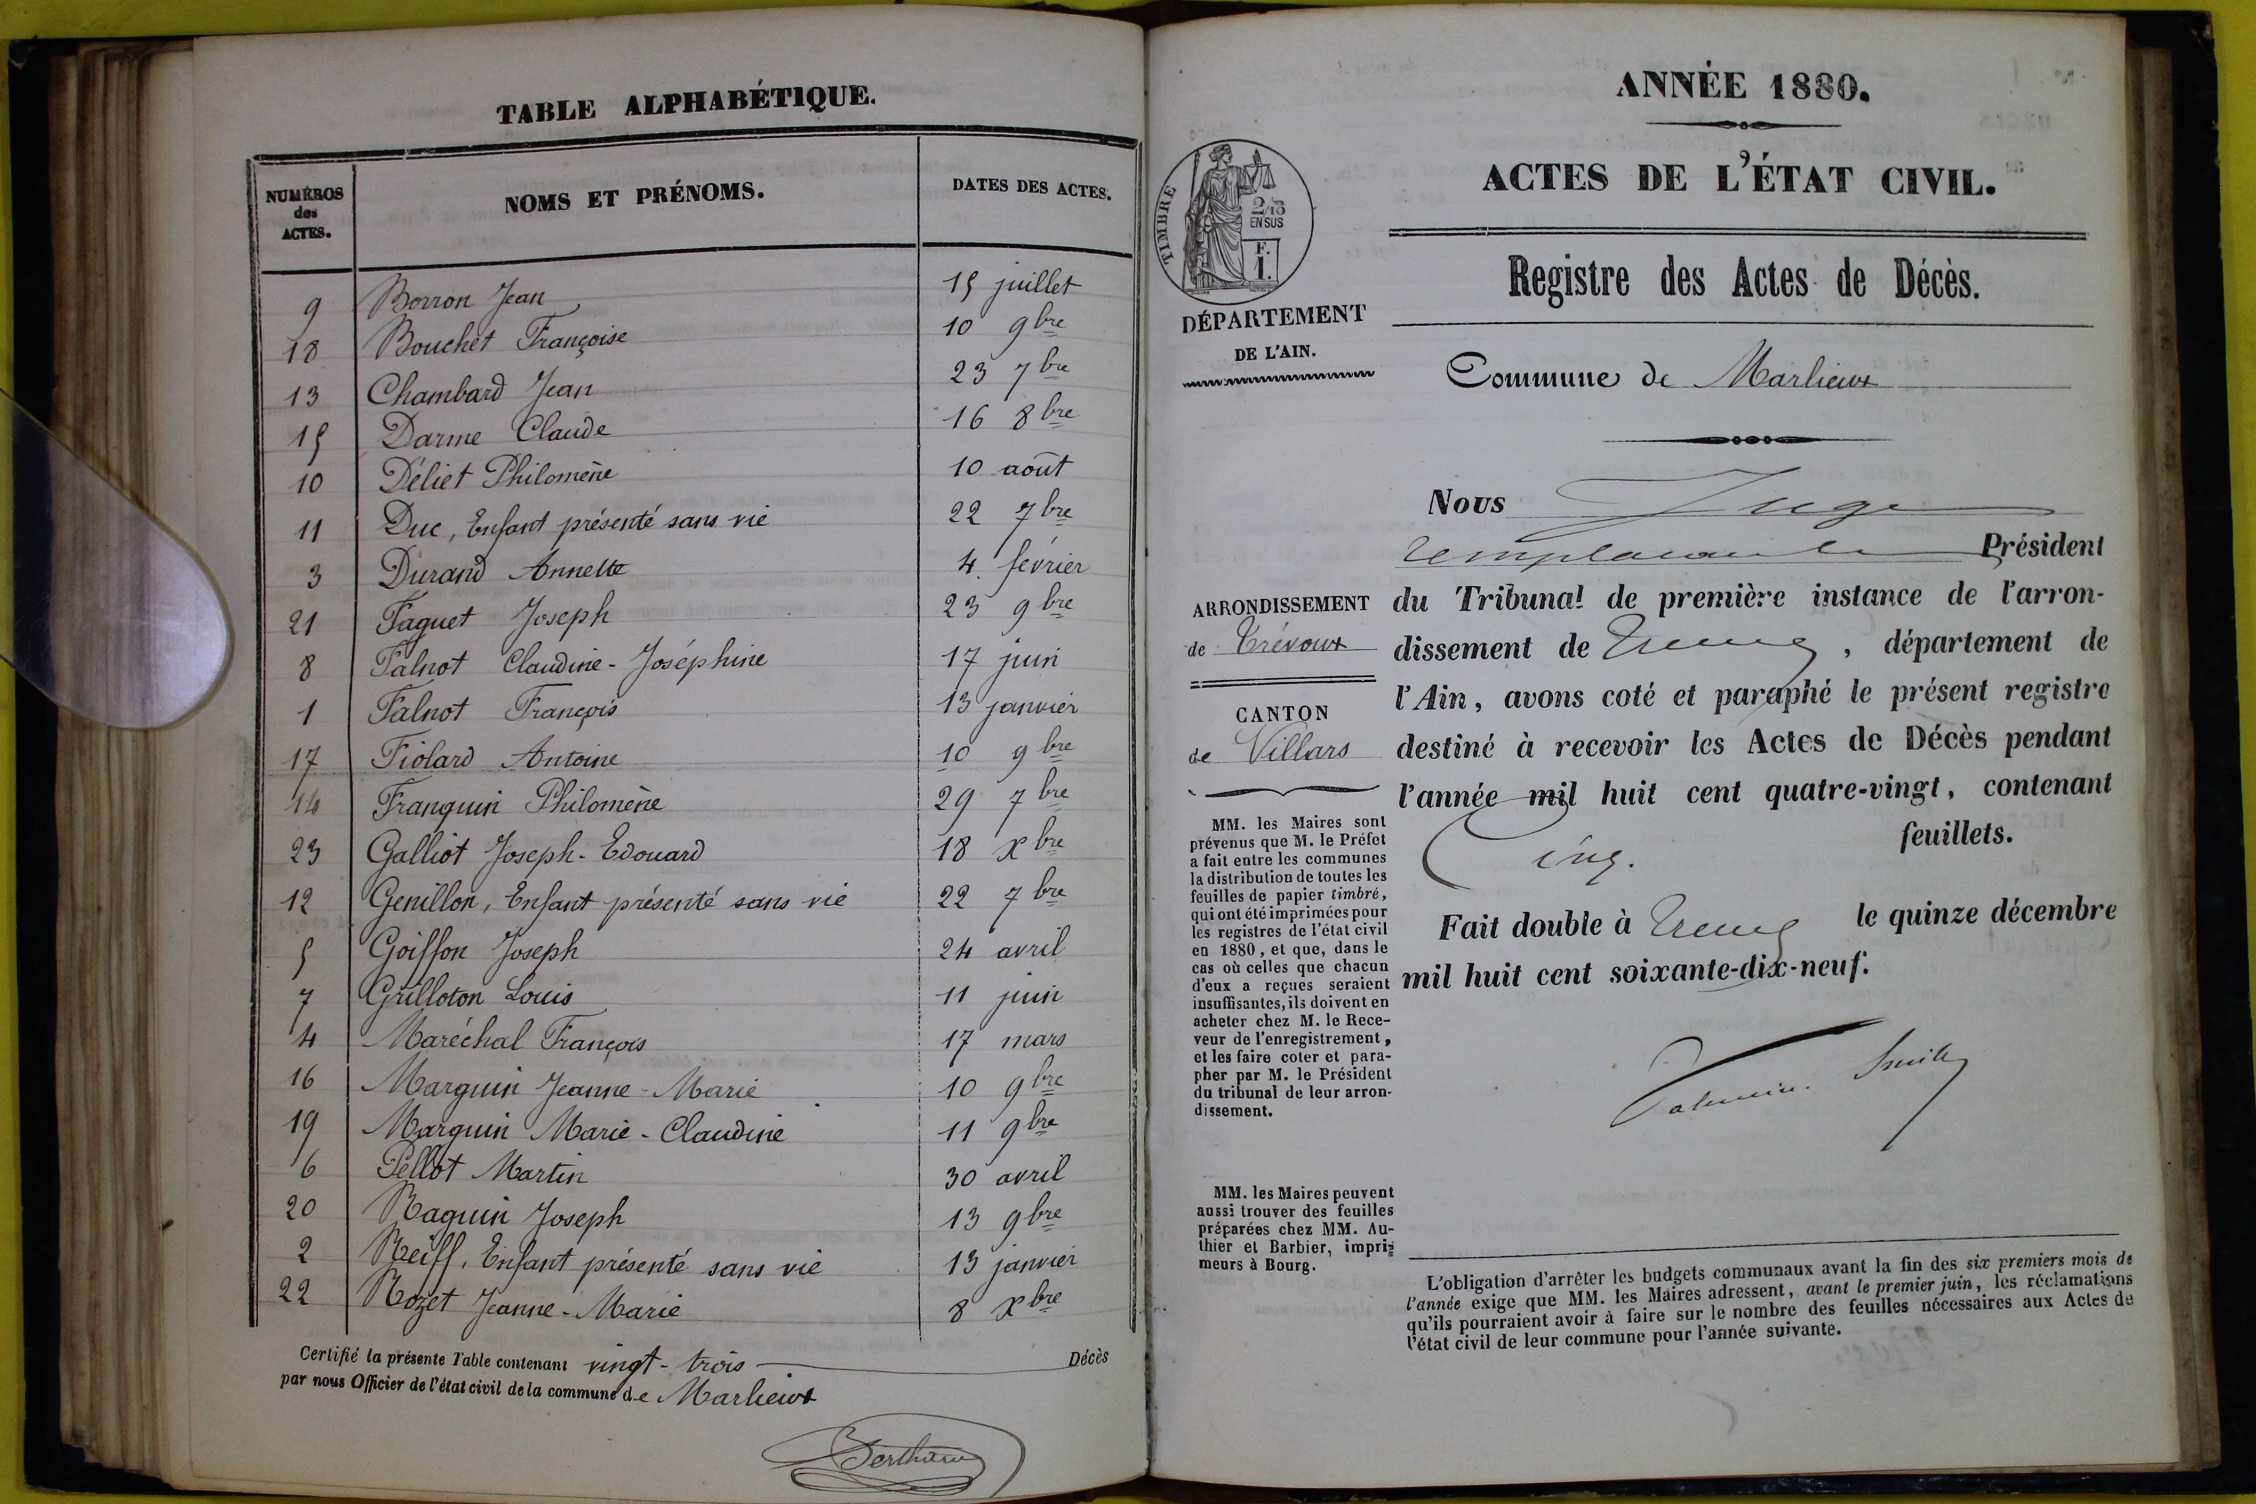 TABLE ALPHABÉTIQUE.
NUMÉROS des ACTES. NOMS ET PRÉNOMS. DATES DES ACTES.
9 Borron Jean 15 juillet
18 Bouchet Françoise 10 9bre
13 Chambard Jean 23 7bre
15 Darme Claude 16 8bre
10 Déliet Philomène 10 août
11 Duc, Enfant présenté sans vie 22 7bre
3 Durand Annette 4 février
21 Faguet Joseph 23 9bre
8 Falnot Claudine-Joséphine 17 juin
1 Falnot François 13 janvier
17 Fiolard Antoine 10 9bre
14 Franquin Philomène 29 7bre
23 Galliot Joseph-Edouard 18 Xbre
12 Genillon, Enfant présenté sans vie 22 7bre
5 Goiffon Joseph 24 avril
7 Grilloton Louis 11 juin
4 Maréchal François 17 mars
16 Marguin Jeanne-Marie 10 9bre
19 Marguin Marie-Claudine 11 9bre
6 Pellot Martin 30 avril
20 Raguin Joseph 13 9bre
2 Reiff, Enfant présenté sans vie 13 janvier
22 Rozet Jeanne-Marie 8 Xbre
Certifié la présente Table contenant vingt-trois Décès
par nous Officier de l'état civil de la commune de Marlieux
ANNÉE 1880.
ACTES DE L'ÉTAT CIVIL.
TIMBRE
2/10
EN SUS
F.
1.
DÉPARTEMENT
DE L'AIN.
Registre des Actes de Décès.
Commune de Marlieux
Nous Juge
remplaçant le Président
du Tribunal de première instance de l'arron-
dissement de , département de
l'Ain, avons coté et paraphé le présent registre
destiné à recevoir les Actes de Décès pendant
l'année mil huit cent quatre-vingt, contenant
Cinq. feuillets.
Fait double à le quinze décembre
mil huit cent soixante-dix-neuf.
ARRONDISSEMENT
de Trévoux
CANTON
de Villars
MM. les Maires sont
prévenus que M. le Préfet
a fait entre les communes
la distribution de toutes les
feuilles de papier timbré,
qui ont été imprimées pour
les registres de l'état civil
en 1880, et que, dans le
cas où celles que chacun
d'eux a reçues seraient
insuffisantes, ils doivent en
acheter chez M. le Rece-
veur de l'enregistrement,
et les faire coter et para-
pher par M. le Président
du tribunal de leur arron-
dissement.
MM. les Maires peuvent
aussi trouver des feuilles
préparées chez MM. Au-
thier et Barbier, impri-
meurs à Bourg.
L'obligation d'arrêter les budgets communaux avant la fin des six premiers mois de
l'année exige que MM. les Maires adressent, avant le premier juin, les réclamations
qu'ils pourraient avoir à faire sur le nombre des feuilles nécessaires aux Actes de
l'état civil de leur commune pour l'année suivante.